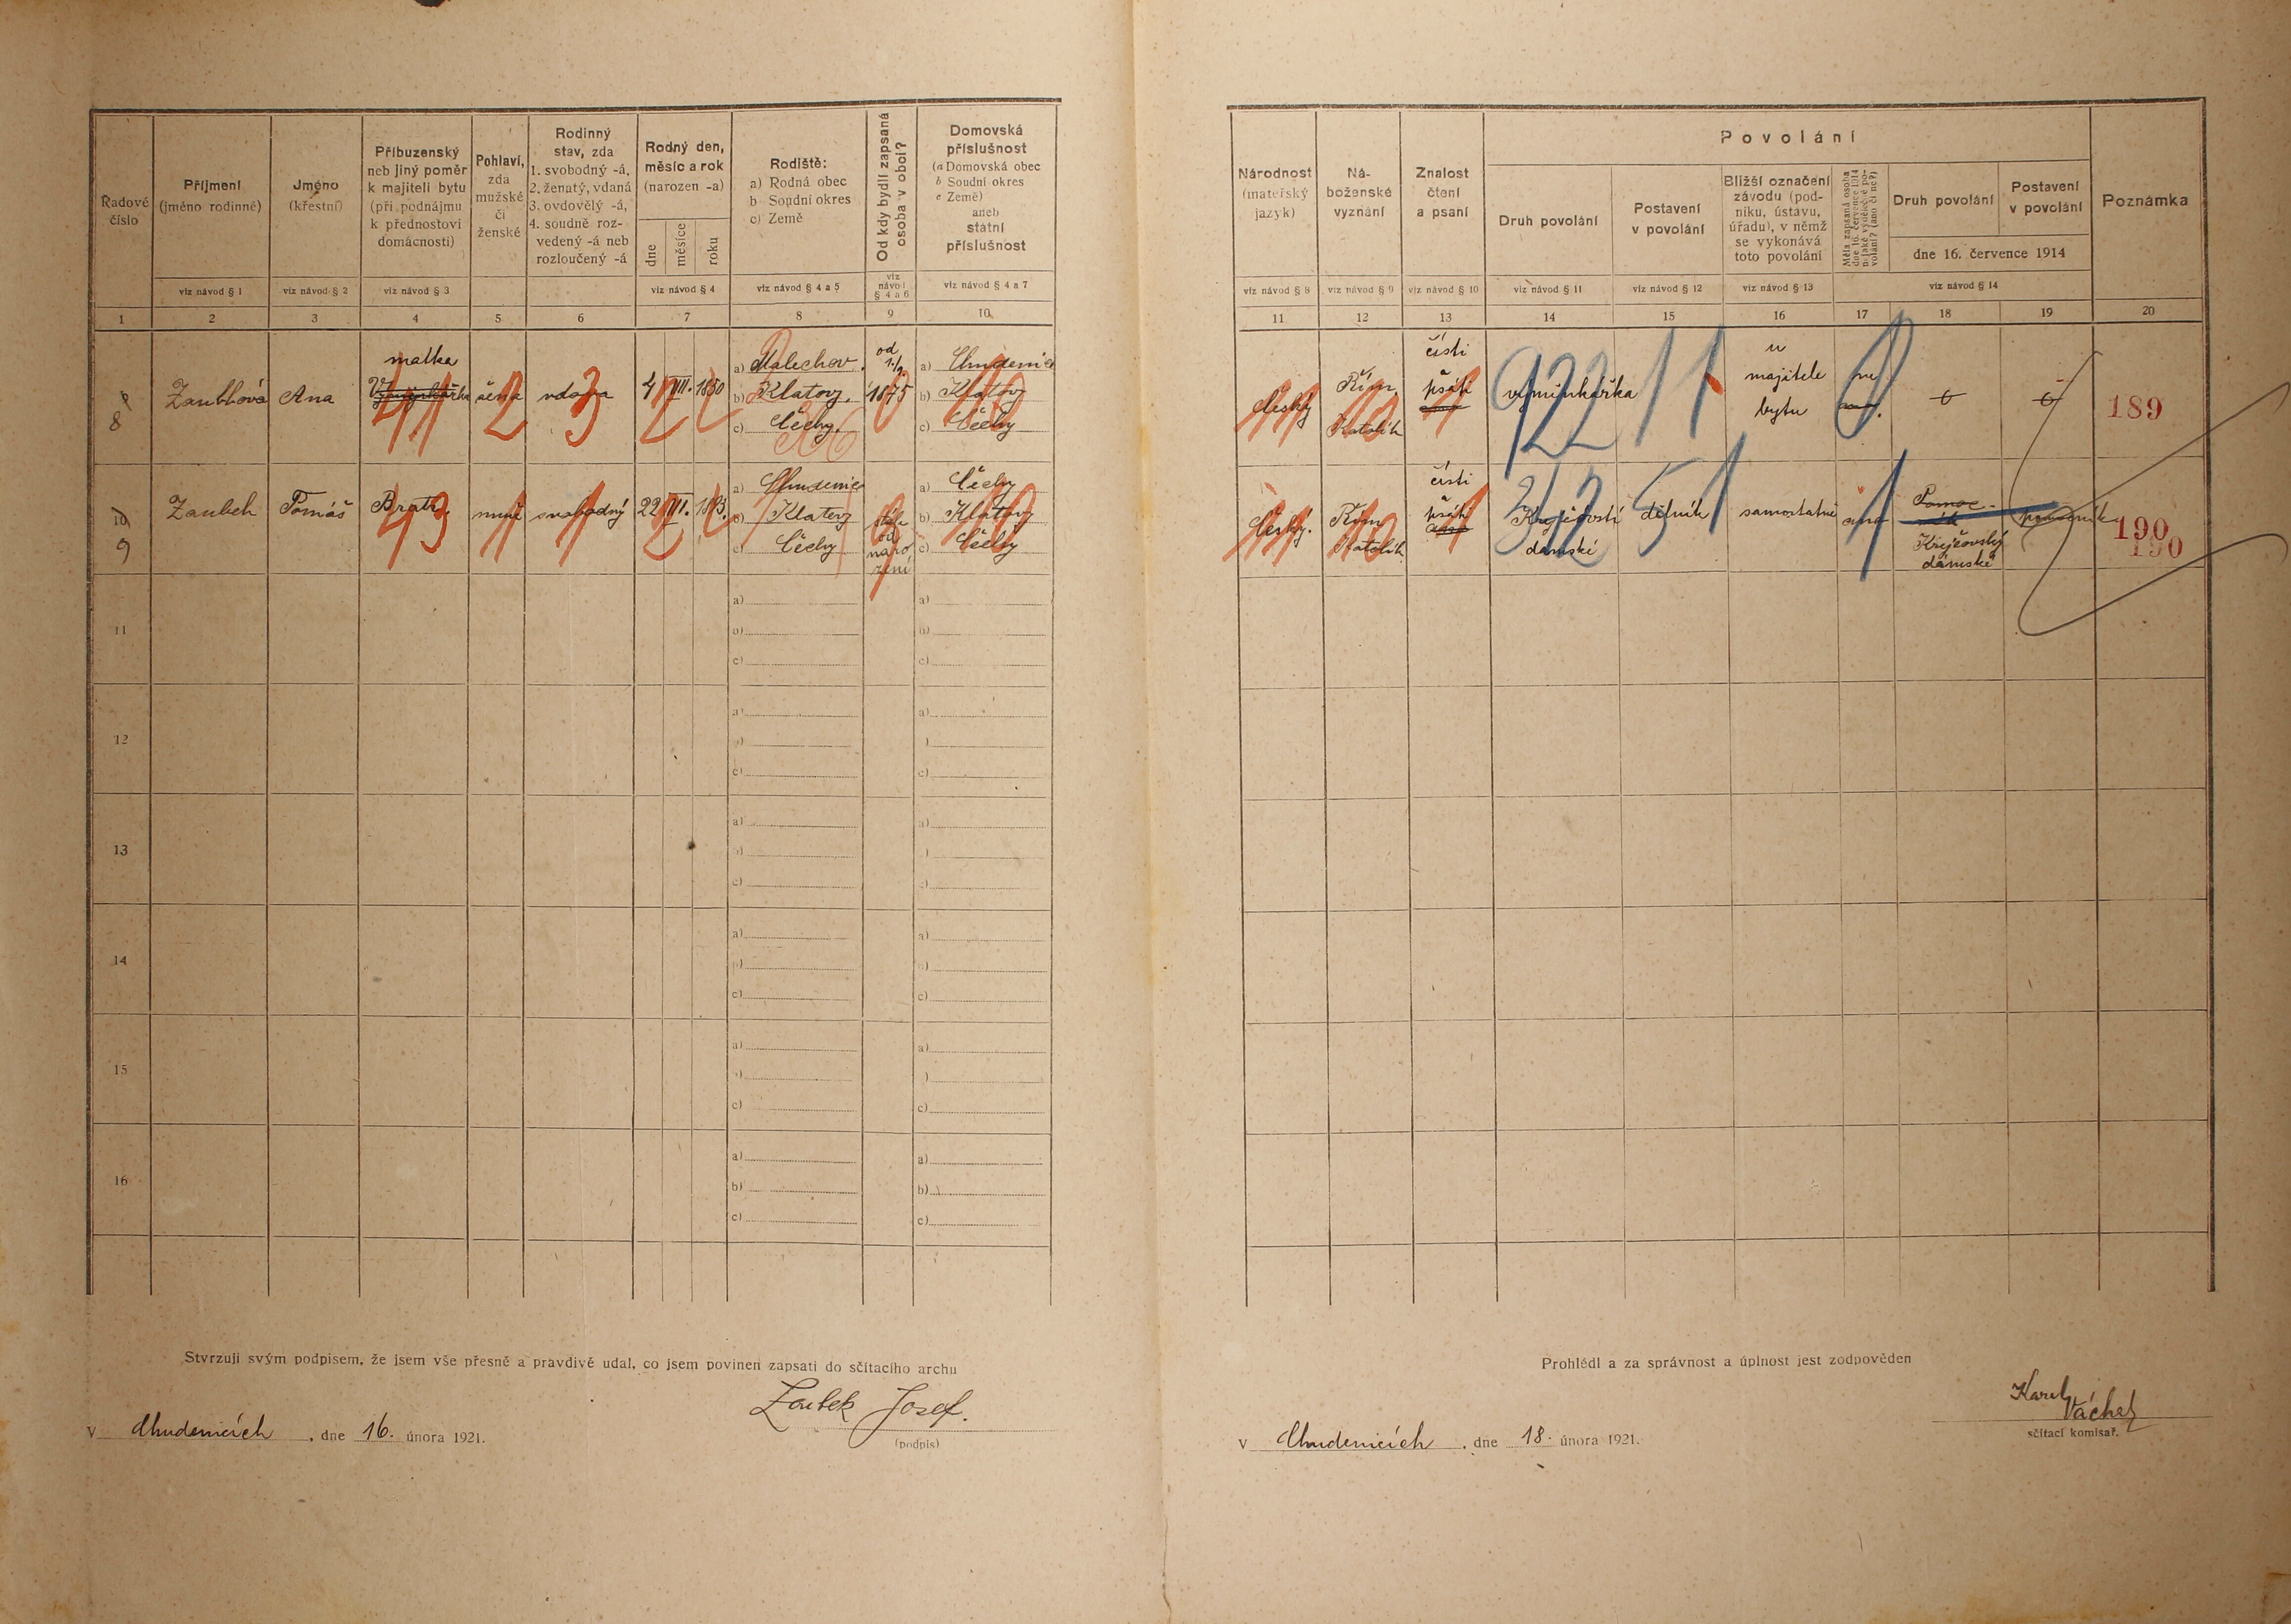 Řadové číslo
Příjmení
(jméno rodinné)
viz návod § 1
Jméno
(křestní)
viz návod § 2
Příbuzenský
neb jiný poměr
k majiteli bytu
(při podnájmu
k přednostovi
domácnosti)
viz návod § 3
Pohlaví,
zda
mužské
či
ženské
Rodinný
stav, zda
1. svobodný -á,
2. ženatý, vdaná
3. ovdovělý -á,
4. soudně roz-
vedený -á neb
rozloučený -á
Rodný den,
měsíc a rok
(narozen -a)
dne
měsíce
roku
viz návod § 4
Rodiště:
a) Rodná obec
b Soudní okres
c) Země
viz návod § 4 a 5
Od kdy bydlí zapsaná
osoba v obci?
viz
návod
§ 4 a 6
Domovská
příslušnost
(a Domovská obec
b Soudní okres
c Země)
aneb
státní
příslušnost
viz návod § 4 a 7
1 2 3 4 5 6 7 8 9 10
8
Zaubkova
Ana
matka
41
2
vdova
3
4 III. 1850
a) Malechov
b) Klatovy.
c) Čechy.
od
1875
a) Chudenice
b) Klatov
c) Čechy
10
9
Zaubek
Tomáš
Bratr.
43
muž
1
svobodný
1
22 III. 1893.
a) Chudenice
b) Klatovy
c) Čechy
od
naro
zení
a) Čechy
b) Klatovy
c) Čechy
11
a)
b)
c)
a)
b)
c)
12
13
14
15
16
a)
b)
c)
a)
b)
c)
Stvrzuji svým podpisem, že jsem vše přesně a pravdivě udal, co jsem povinen zapsati do sčítacího archu
Zaubek Josef.
(podpis)
V Chudenicích, dne 16. února 1921.
Národnost
(mateřský
jazyk)
viz návod § 8
Ná-
boženské
vyznání
viz návod § 9
Znalost
čtení
a psaní
viz návod § 10
Povolání
Druh povolání
viz návod § 11
Postavení
v povolání
viz návod § 12
Bližší označení
závodu (pod-
niku, ústavu,
úřadu), v němž
se vykonává
toto povolání
viz návod § 13
Měla zapsaná osoba
dne 16. července 1914
nějaké výdělečné po-
volání? (ano či ne?)
Druh povolání
Postavení
v povolání
dne 16. července 1914
viz návod § 14
Poznámka
11 12 13 14 15 16 17 18 19 20
český
11
Řím.
Katolík
10
čísti
a
psáti
1
výminkářka
922
11
u
majitele
bytu
ne
0
189
český.
11
Řím
Katolík
10
čísti
a
psáti
1
Krejčovství
dámské
dělník
51
samostatně
ano
1
Pomoc-
ník
Krejčovský
dámské
pomocník
190
190
Prohlédl a za správnost a úplnost jest zodpověden
Karel
Váchal
sčítací komisař.
V Chudenicích, dne 18. února 1921.